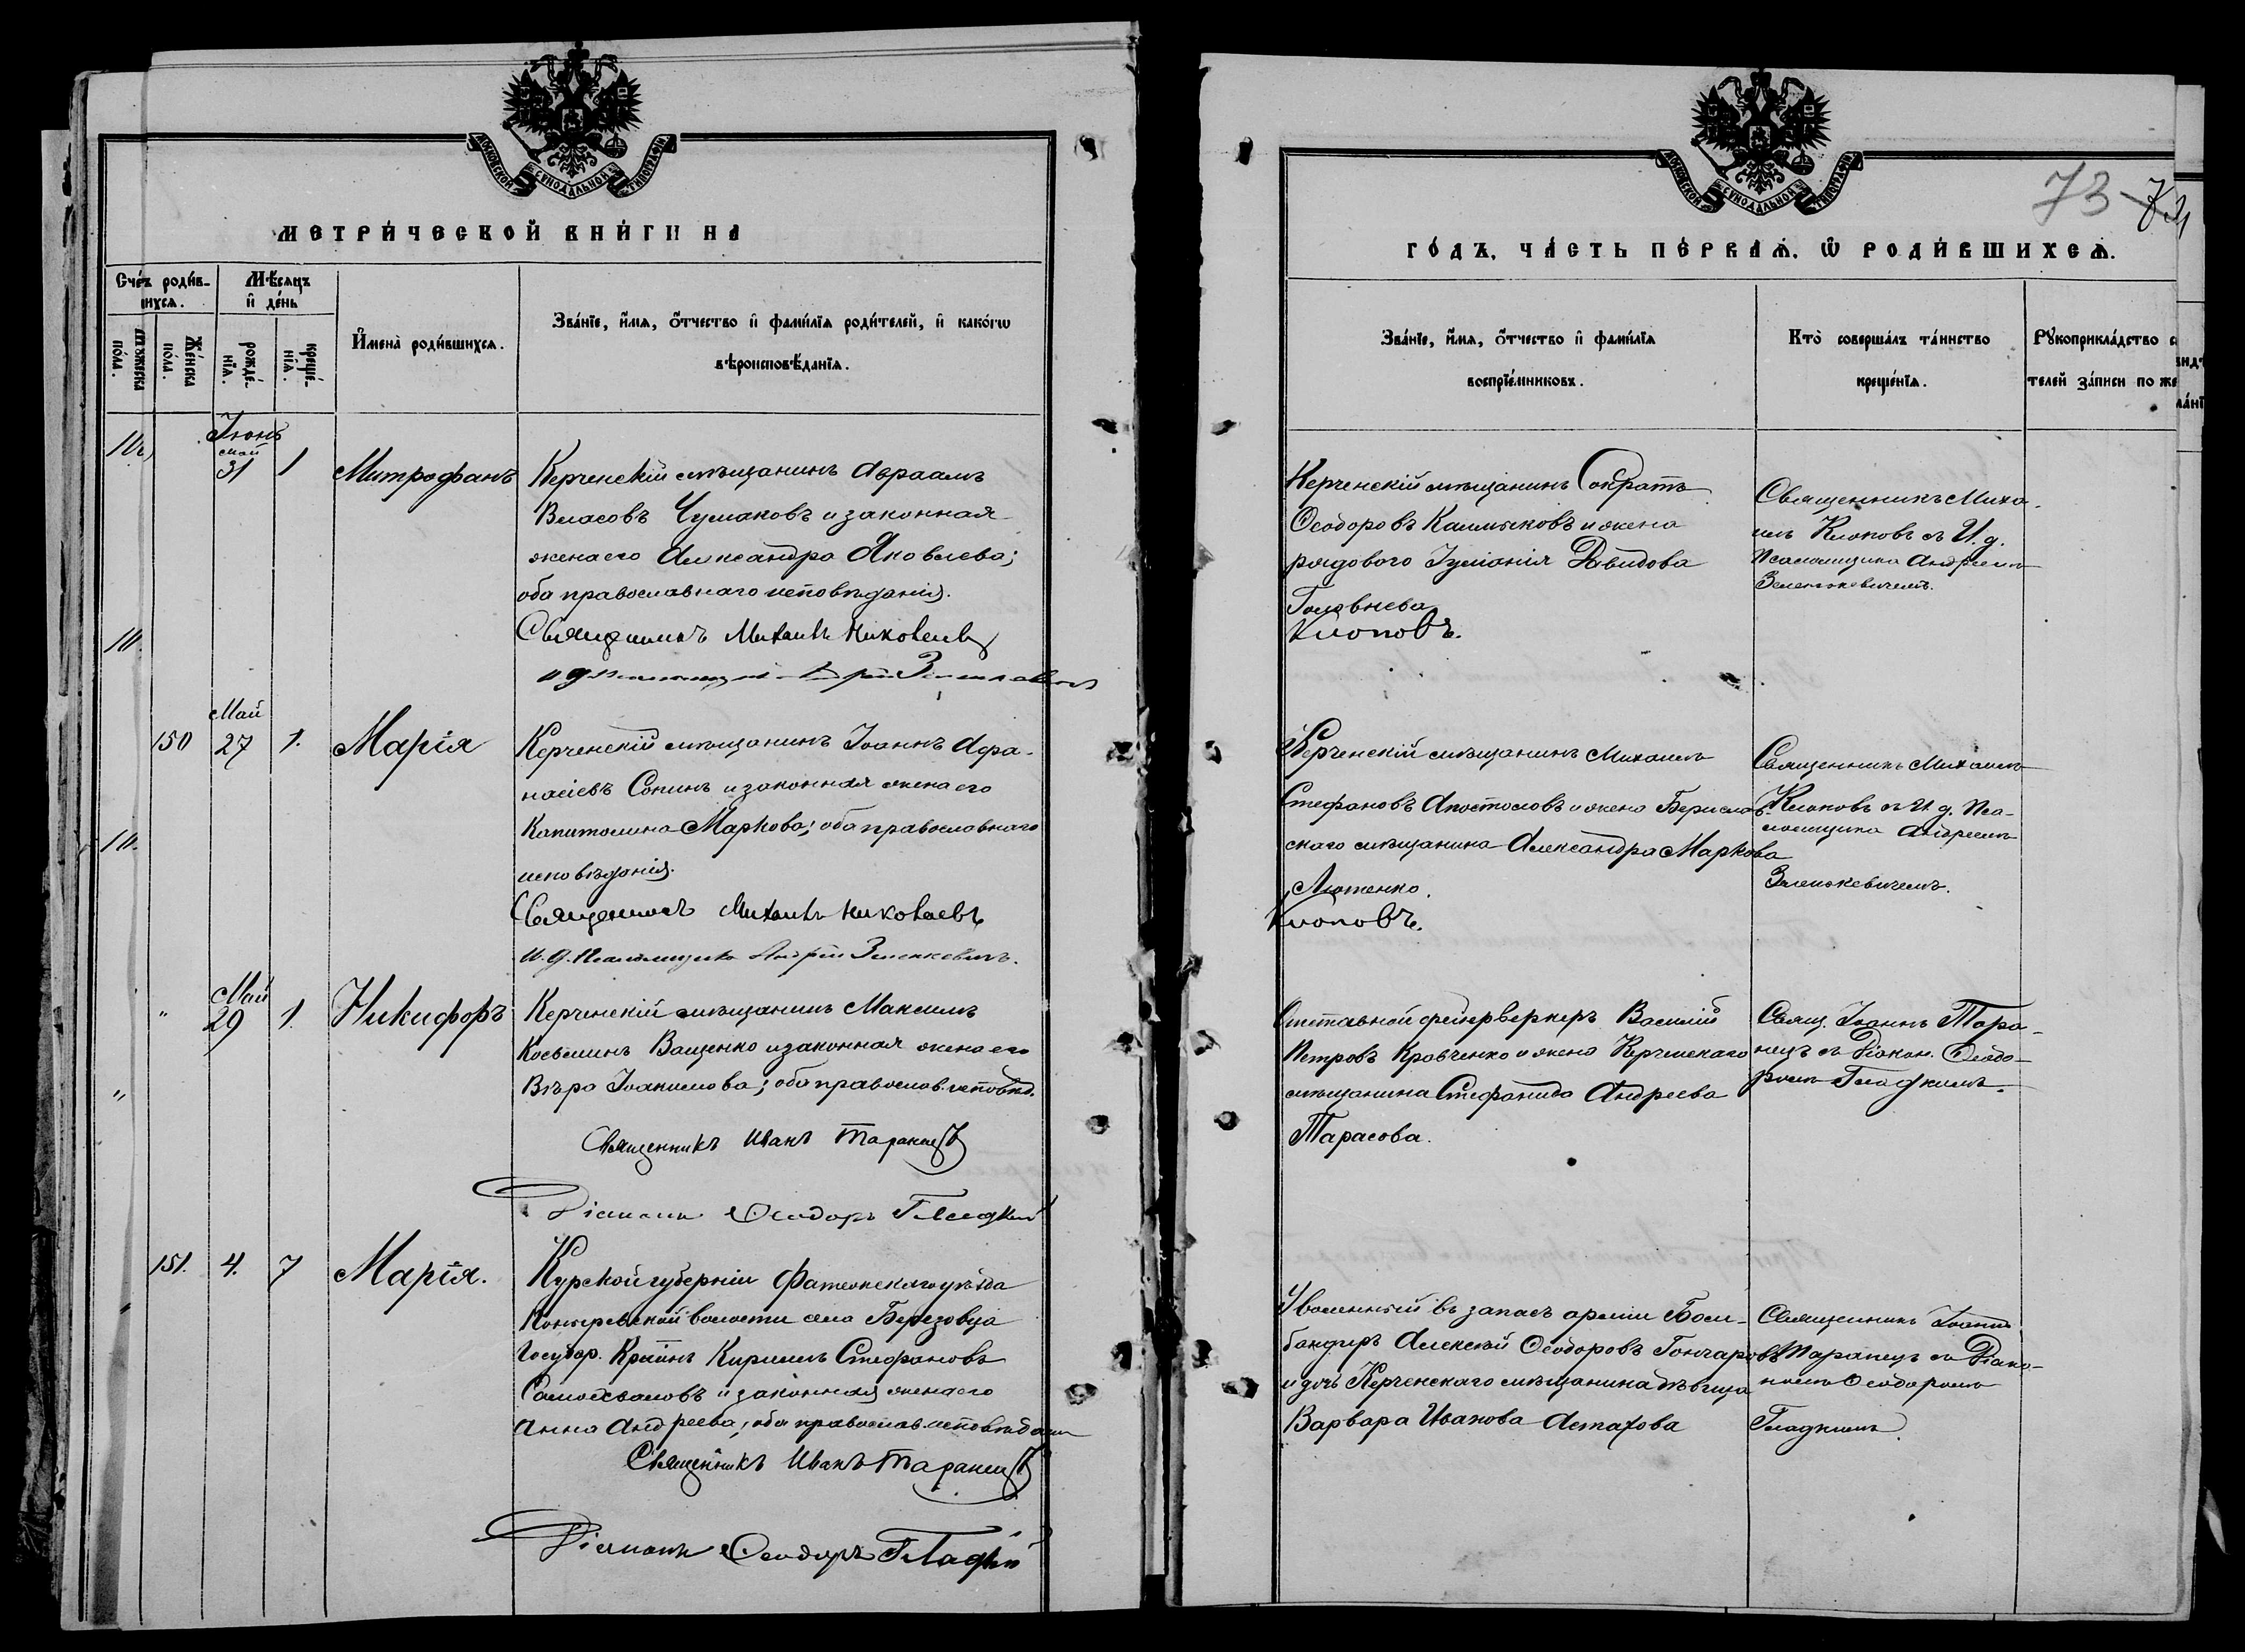 МОСКОВСКОЙ СѴНОДАЛЬНОЙ ТИПОГРАФІИ
МЕТРИ́ЧЕСКОЙ КНИ́ГИ НА
Сче́тъ роди́в-
шихся.
Мѣ́сяцъ
и҆ де́нь
Мꙋ́жеска
по́ла.
Же́нска
по́ла.
рожде́-
нїѧ.
креще́-
нїѧ.
И҆мена̀ роди́вшихсѧ.
Зва́нїе, и҆́мѧ, ѻ҆́тчество и҆ фами́лїѧ роди́телей, и҆ како́гѡ
вѣроисповѣ́данїѧ.
Іюнь
май
31 1 Митрофанъ
Керченскій мѣщанинъ Авраамъ
Власовъ Чумаковъ и законная
жена его Александра Яковлева;
оба православнаго исповѣданія.
Священникъ Михаилъ Николаевъ
Май
150 27 1. Марія
Керченскій мѣщанинъ Іоаннъ Афа-
насіевъ Сонинъ и законная жена его
Капитолина Маркова; оба православнаго
исповѣданія.
Священникъ Михаилъ Николаевъ
и. д. Псаломщика Андрей Зеленкевичъ.
Май
" 29 1. Никифоръ
Керченскій мѣщанинъ Максимъ
Косьминъ Ващенко и законная жена его
Вѣра Іоакимова; оба православ. исповѣд.
"
Священникъ Иванъ Таранецъ
Діаконъ Ѳеодоръ Гладкій
151. 4. 7 Марія.
Курской губерніи Фатежскаго уѣзда
волости села Березовца
Государ. Крестьян. Кириллъ Стефановъ
Самойловъ и законная жена его
Анна Андреева; оба православ. исповѣдан
Священникъ Иванъ Таранецъ
Діаконъ Ѳеодоръ Гладкій
МОСКОВСКОЙ СѴНОДАЛЬНОЙ ТИПОГРАФІИ
73
ГО́ДЪ, ЧА́СТЬ ПЕ́РВАѦ, Ѡ҆ РОДИ́ВШИХСѦ.
Зва́нїе, и҆́мѧ, ѻ҆́тчество и҆ фами́лїѧ
воспрїе́мниковъ.
Кто̀ соверша́лъ та́инство
креще́нїѧ.
Рꙋкоприкла́дство с
телей за́писи по же
Керченскій мѣщанинъ Сократъ
Ѳеодоровъ Калмыковъ и жена
рядового Іуліанія Давидова
Головнева
Клоповъ.
Священникъ Миха-
илъ Клоповъ съ И. д.
Псаломщика Андреемъ
Зеленкевичемъ.
Керченскій мѣщанинъ Михаилъ
Стефановъ Апостоловъ и жена Берислав-
скаго мѣщанина Александра Маркова
Лютенко.
Клоповъ.
Священникъ Михаилъ
Клоповъ съ И. д. Пса-
ломщика Андреемъ
Зеленкевичемъ.
Отставной фейерверкеръ Василій
Петровъ Кравченко и жена Керченскаго
мѣщанина Стефанида Андреева
Тарасова.
Свящ. Іоаннъ Тара-
нецъ съ Діакон. Ѳеодо-
ромъ Гладкимъ.
Уволенный въ запасъ арміи Бом-
бандиръ Алексѣй Ѳеодоровъ Гончаровъ
и дочь Керченскаго мѣщанина дѣвица
Варвара Иванова Астахова
Священникъ Іоаннъ
Таранецъ съ Діако-
номъ Ѳеодоромъ
Гладкимъ.